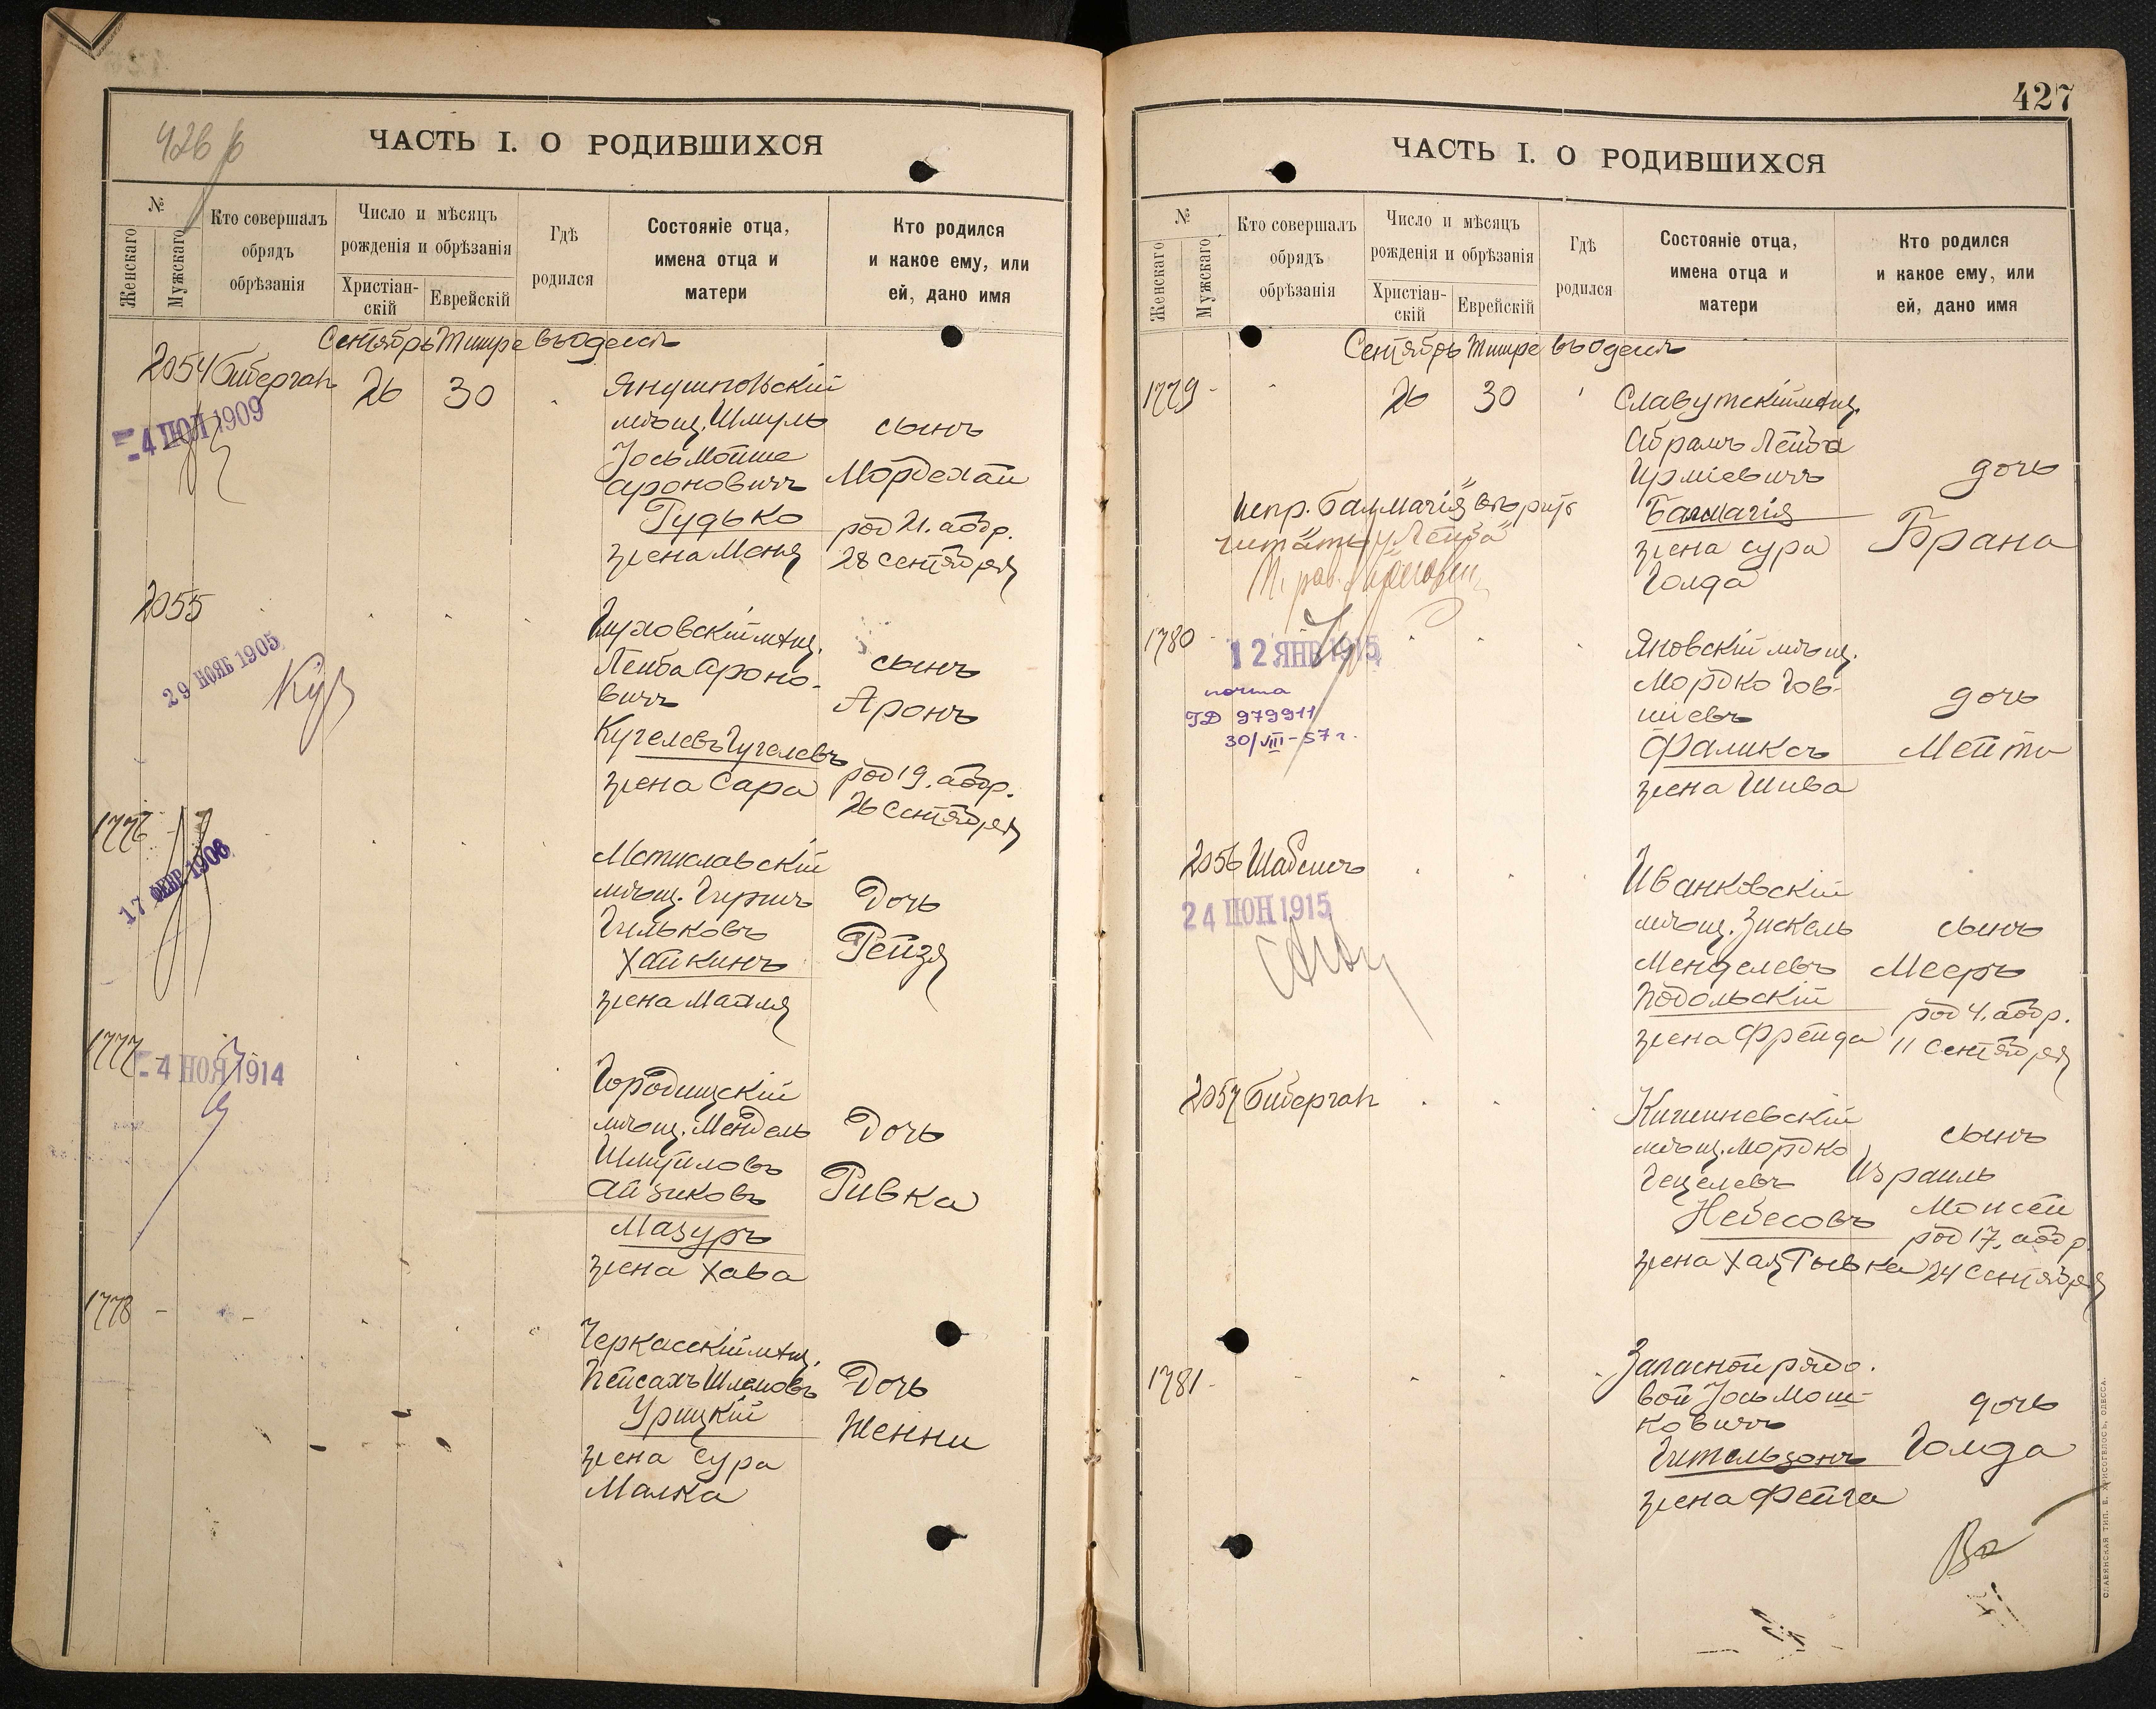 426
ЧАСТЬ I. О РОДИВШИХСЯ
№
Женскаго
Мужскаго
Кто совершалъ обрядъ обрѣзанія
Число и мѣсяцъ рожденія и обрѣзанія
Христіан-скій
Еврейскій
Гдѣ родился
Состояніе отца, имена отца и матери
Кто родился и какое ему, или ей, дано имя
Сентябрь Тишре въ Одессѣ
2054 Бибергалъ 26 30
Янушпольскій
мѣщ. Шмуль
Іось Мойше
Ароновичъ
Гудько
жена Меня
сынъ
Мордехай
род 21. а обр.
28 Сентября
4 ІЮЛ 1909
2055
Лейба Ароно-
вичъ
Кугелевъ Гугелевъ
жена Сара
сынъ
Аронъ
род 19. а обр.
26 Сентября
29 НОЯБ 1905
1776 -
Мстиславскій
мѣщ. Гиршъ
Гильковъ
Хайкинъ
жена
Дочь
Рейзя
17 ФЕВР 1908
1777 -
Городищскій
мѣщ. Мендель
Шмуиловъ
Айзиковъ
Мазуръ
жена Хава
Дочь
Ривка
4 НОЯ 1914
1778 -
Черкасскій мѣщ.
Пейсахъ Шлемовъ
Урицкій
жена Сура
Малка
Дочь
Женни
427
ЧАСТЬ I. О РОДИВШИХСЯ
№
Женскаго
Мужскаго
Кто совершалъ обрядъ обрѣзанія
Число и мѣсяцъ рожденія и обрѣзанія
Христіан-скій
Еврейскій
Гдѣ родился
Состояніе отца, имена отца и матери
Кто родился и какое ему, или ей, дано имя
Сентябрь Тишре въ Одессѣ
1779 - 26 30
Славутскій мѣщ.
Абрамъ Лейба
Ирміевичъ
Балмагія
жена Сура
Голда
дочь
Брана
1780 -
12 ЯНВ 1915
почта
ГД 979911
30/VIII-57 г.
Яновскій мѣщ.
Мордко Гов-
шіевъ
Фаликсъ
жена Шива
дочь
2056 Шабсисъ
24 ІЮН 1915
Иванковскій
мѣщ. Зискель
Менделевъ
Подольскій
жена Фрейда
сынъ
Мееръ
род 4. а обр.
11 Сентября
2057 Бибергалъ
Кишиневскій
мѣщ. Мордко
Гецелевъ
Небесовъ
жена Хая Рывка
сынъ
Израиль
Моисей
род 17. а обр.
24 Сентября
1781 -
Запасной рядо-
вой Іось Мош-
ковичъ
Гительзонъ
жена Фейга
дочь
Голда
СЛАВЯНСКАЯ ТИП. Е. ХРИСОГЕЛОСЪ, ОДЕССА.